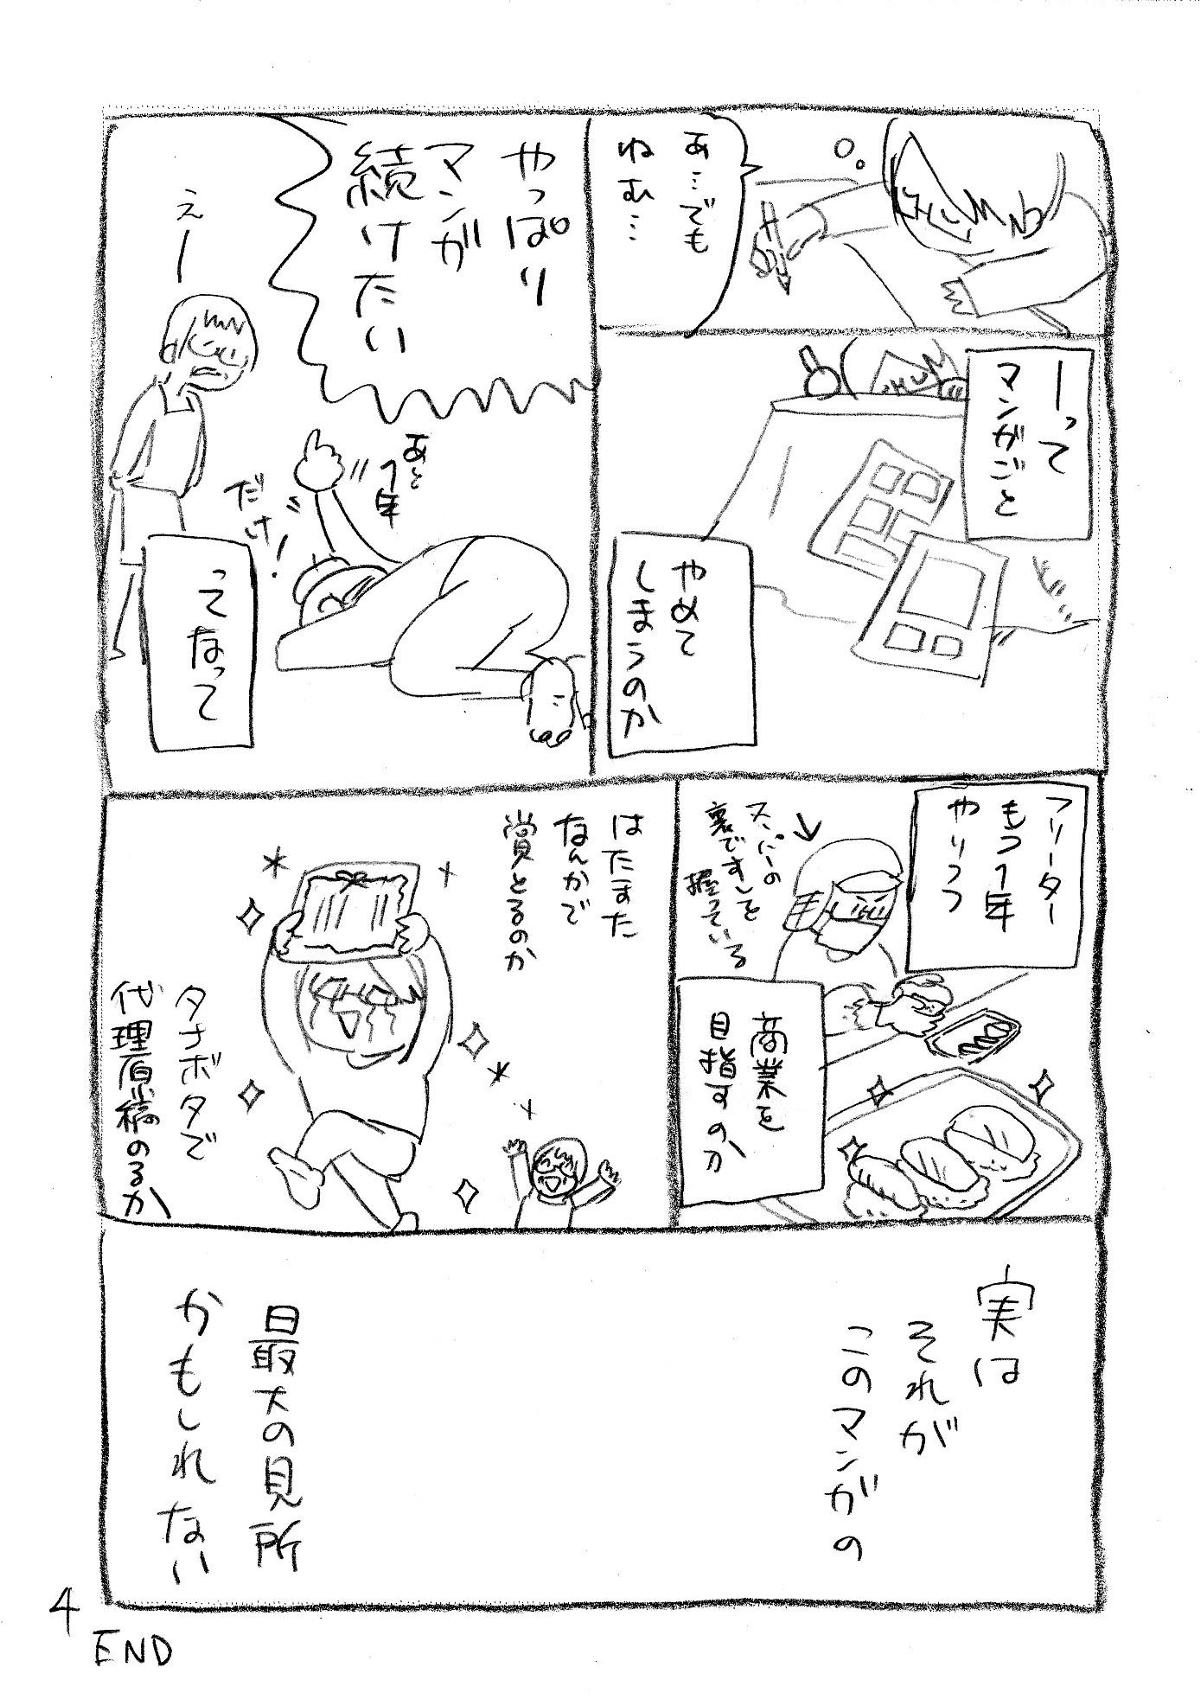 あ…でも
ねむ…
ーって
マンガごと
やめて
しまうのか
やっぱり
マンガ
続けたい
えー
あと
1年
だけ!
ってなって
フリーター
もう1年
やりつつ
スーパーの
裏ですしを
握っている
商業を
目指すのか
はたまた
なんかで
賞とるのか
タナボタで
代理原稿のるか
実は
それが
このマンガの
最大の見所
かもしれない
4
END